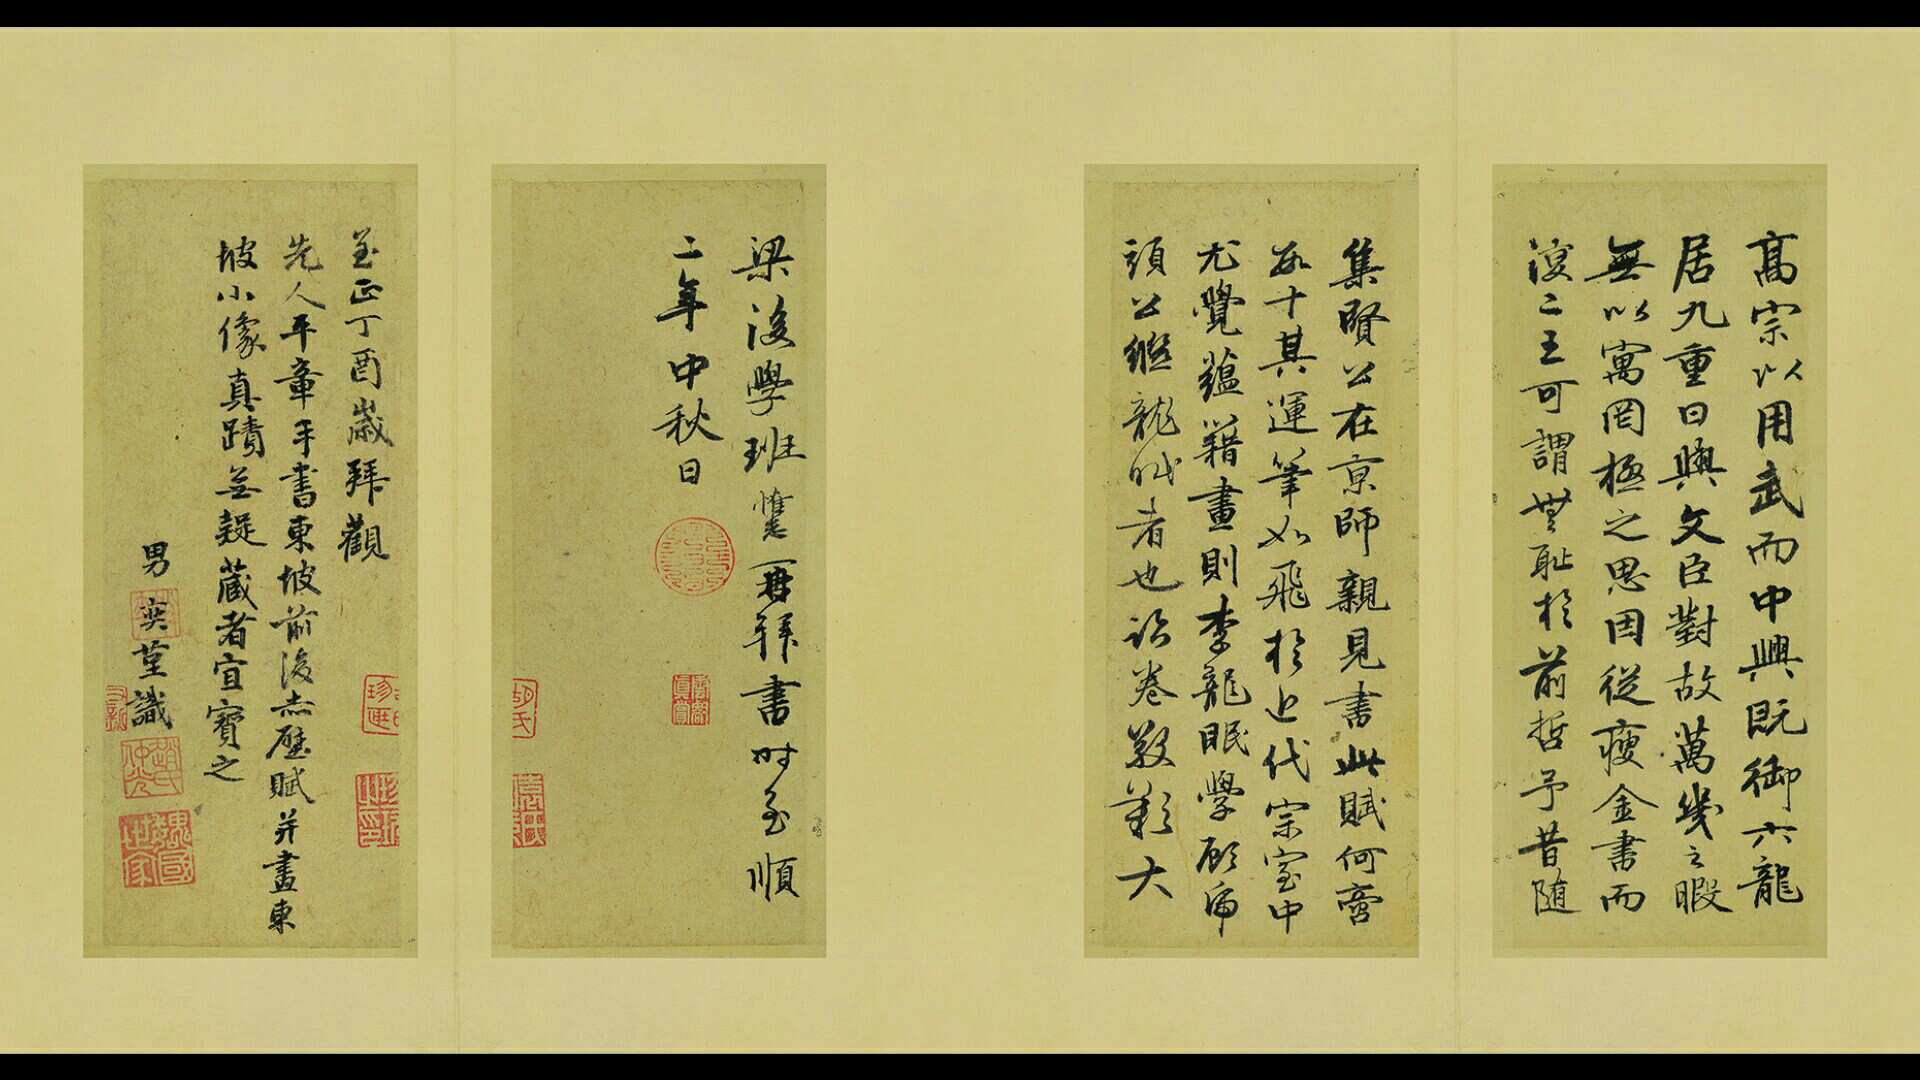 高宗以用武而中興既御六龍
居九重日與文臣對故萬幾之暇
無以寓罔極之思因從瘦金書而
復二王可謂無恥於前哲予昔随
集賢公在京師親見書此賦何啻
數十其運筆如飛於近代宗室中
尤覺蘊藉畫則李龍眠學顧虎
頭公繼龍眠者也詠卷敬歎大
梁後學班惟志再拜書时至順
二年中秋日
至正丁酉歲拜觀
先人平章手書東坡前後赤壁賦并畫東
坡小像真蹟無疑蔵者宜寶之
男奕
識
趙氏
魏國世家